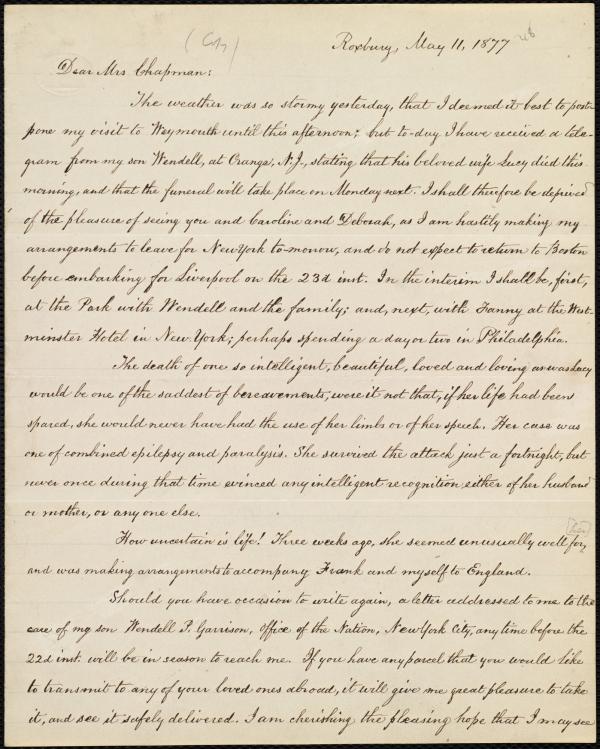 (Copy)
Roxbury, May 11, 1877
Dear Mrs Chapman:
The weather was so stormy yesterday, that I deemed it best to post-
pone my visit to Weymouth until this afternoon; but to-day I have received a tele-
gram from my son Wendell, at Orange, N.J., stating that his beloved wife Lucy died this
morning, and that the funeral will take place on Monday next. I shall therefore be deprived
of the pleasure of seeing you and Caroline and Deborah, as I am hastily making my
arrangements to leave for New York to-morrow, and do not expect to return to Boston
before embarking for Liverpool on the 23d inst. In the interim I shall be, first,
at the Park with Wendell and the family; and, next, with Fanny at the West-
minster Hotel in New York; perhaps spending a day or two in Philadelphia.
The death of one so intelligent, beautiful, loved and loving as was Lucy
would be one of the saddest of bereavements, were it not that, if her life had been
spared, she would never have had the use of her limbs or of her speech. Her case was
one of combined epilepsy and paralysis. She survived the attack just a fortnight, but
never once during that time evinced any intelligent recognition, either of her husband
or mother, or any one else.
How uncertain is life! Three weeks ago, she seemed unusually well for
her,
and was making arrangements to accompany Frank and myself to England.
Should you have occasion to write again, a letter addressed to me to the
care of my son Wendell P. Garrison, Office of the Nation, New York City, any time before the
22d inst. will be in season to reach me. If you have any parcel that you would like
to transmit to any of your loved ones abroad, it will give me great pleasure to take
it, and see it safely delivered. I am cherishing the pleasing hope that I may see